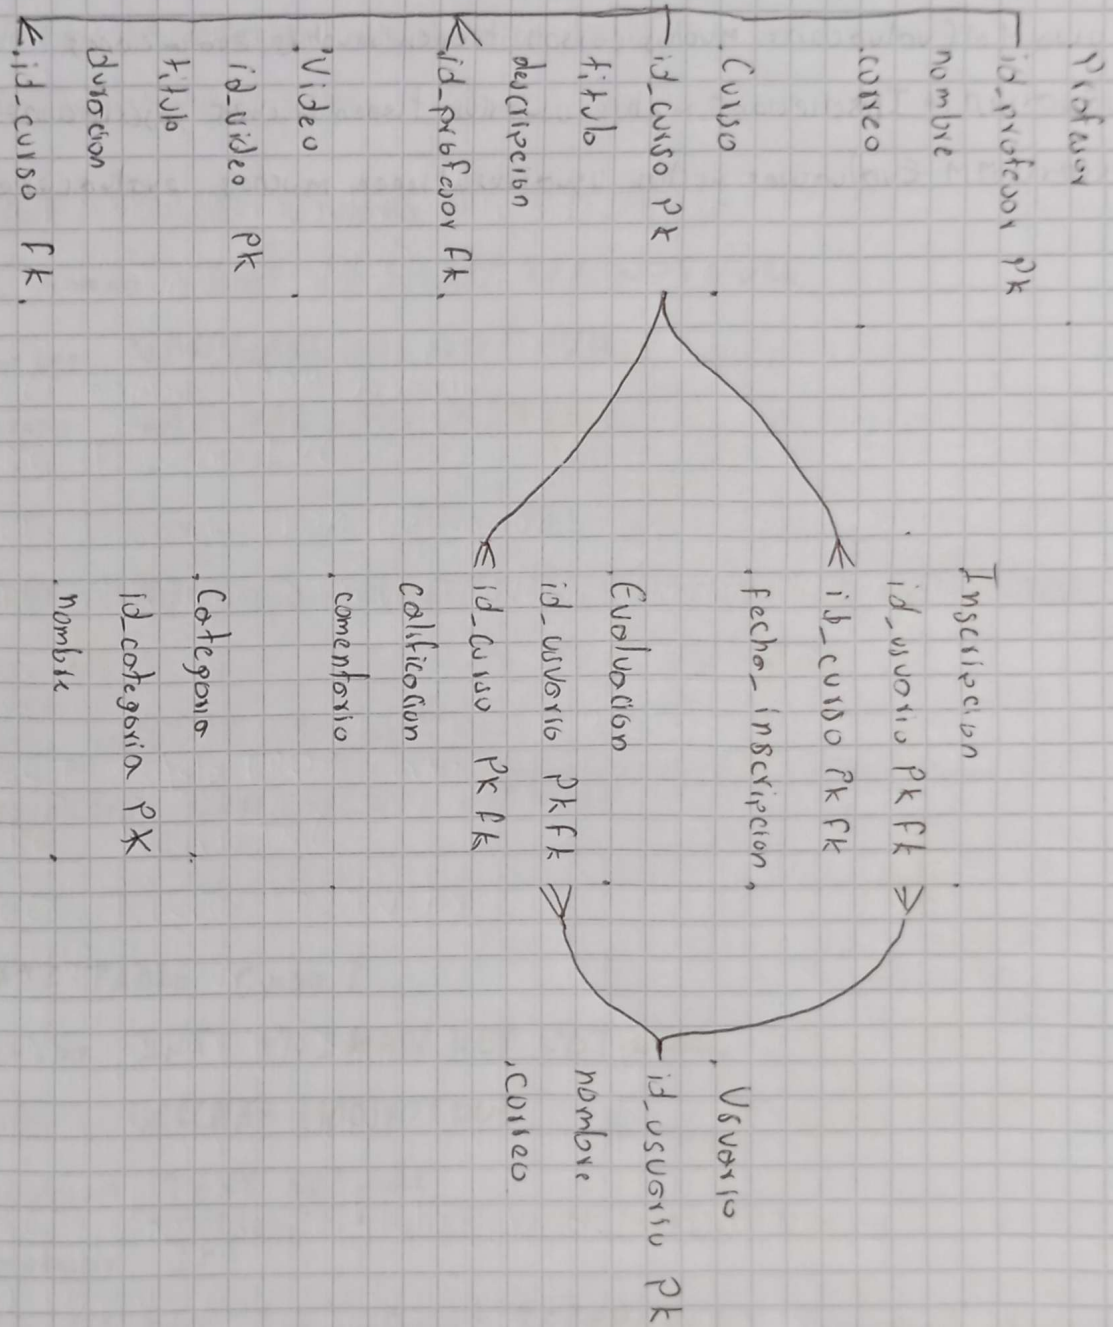 Profesor
id_profesor Pk
nombre
correo
Curso
id_curso Pk
titulo
descripcion
id_profesor fk
Video
id_video pk
titulo
duracion
id_curso fk
Inscripcion
id_usuario Pk fk
id_curso Pk fk
fecha_inscripcion
Evaluacion
id_usuario Pk fk
id_curso Pk fk
Calificacion
comentario
Categoria
id_categoria PK
nombre
Usuario
id_usuario Pk
nombre
correo